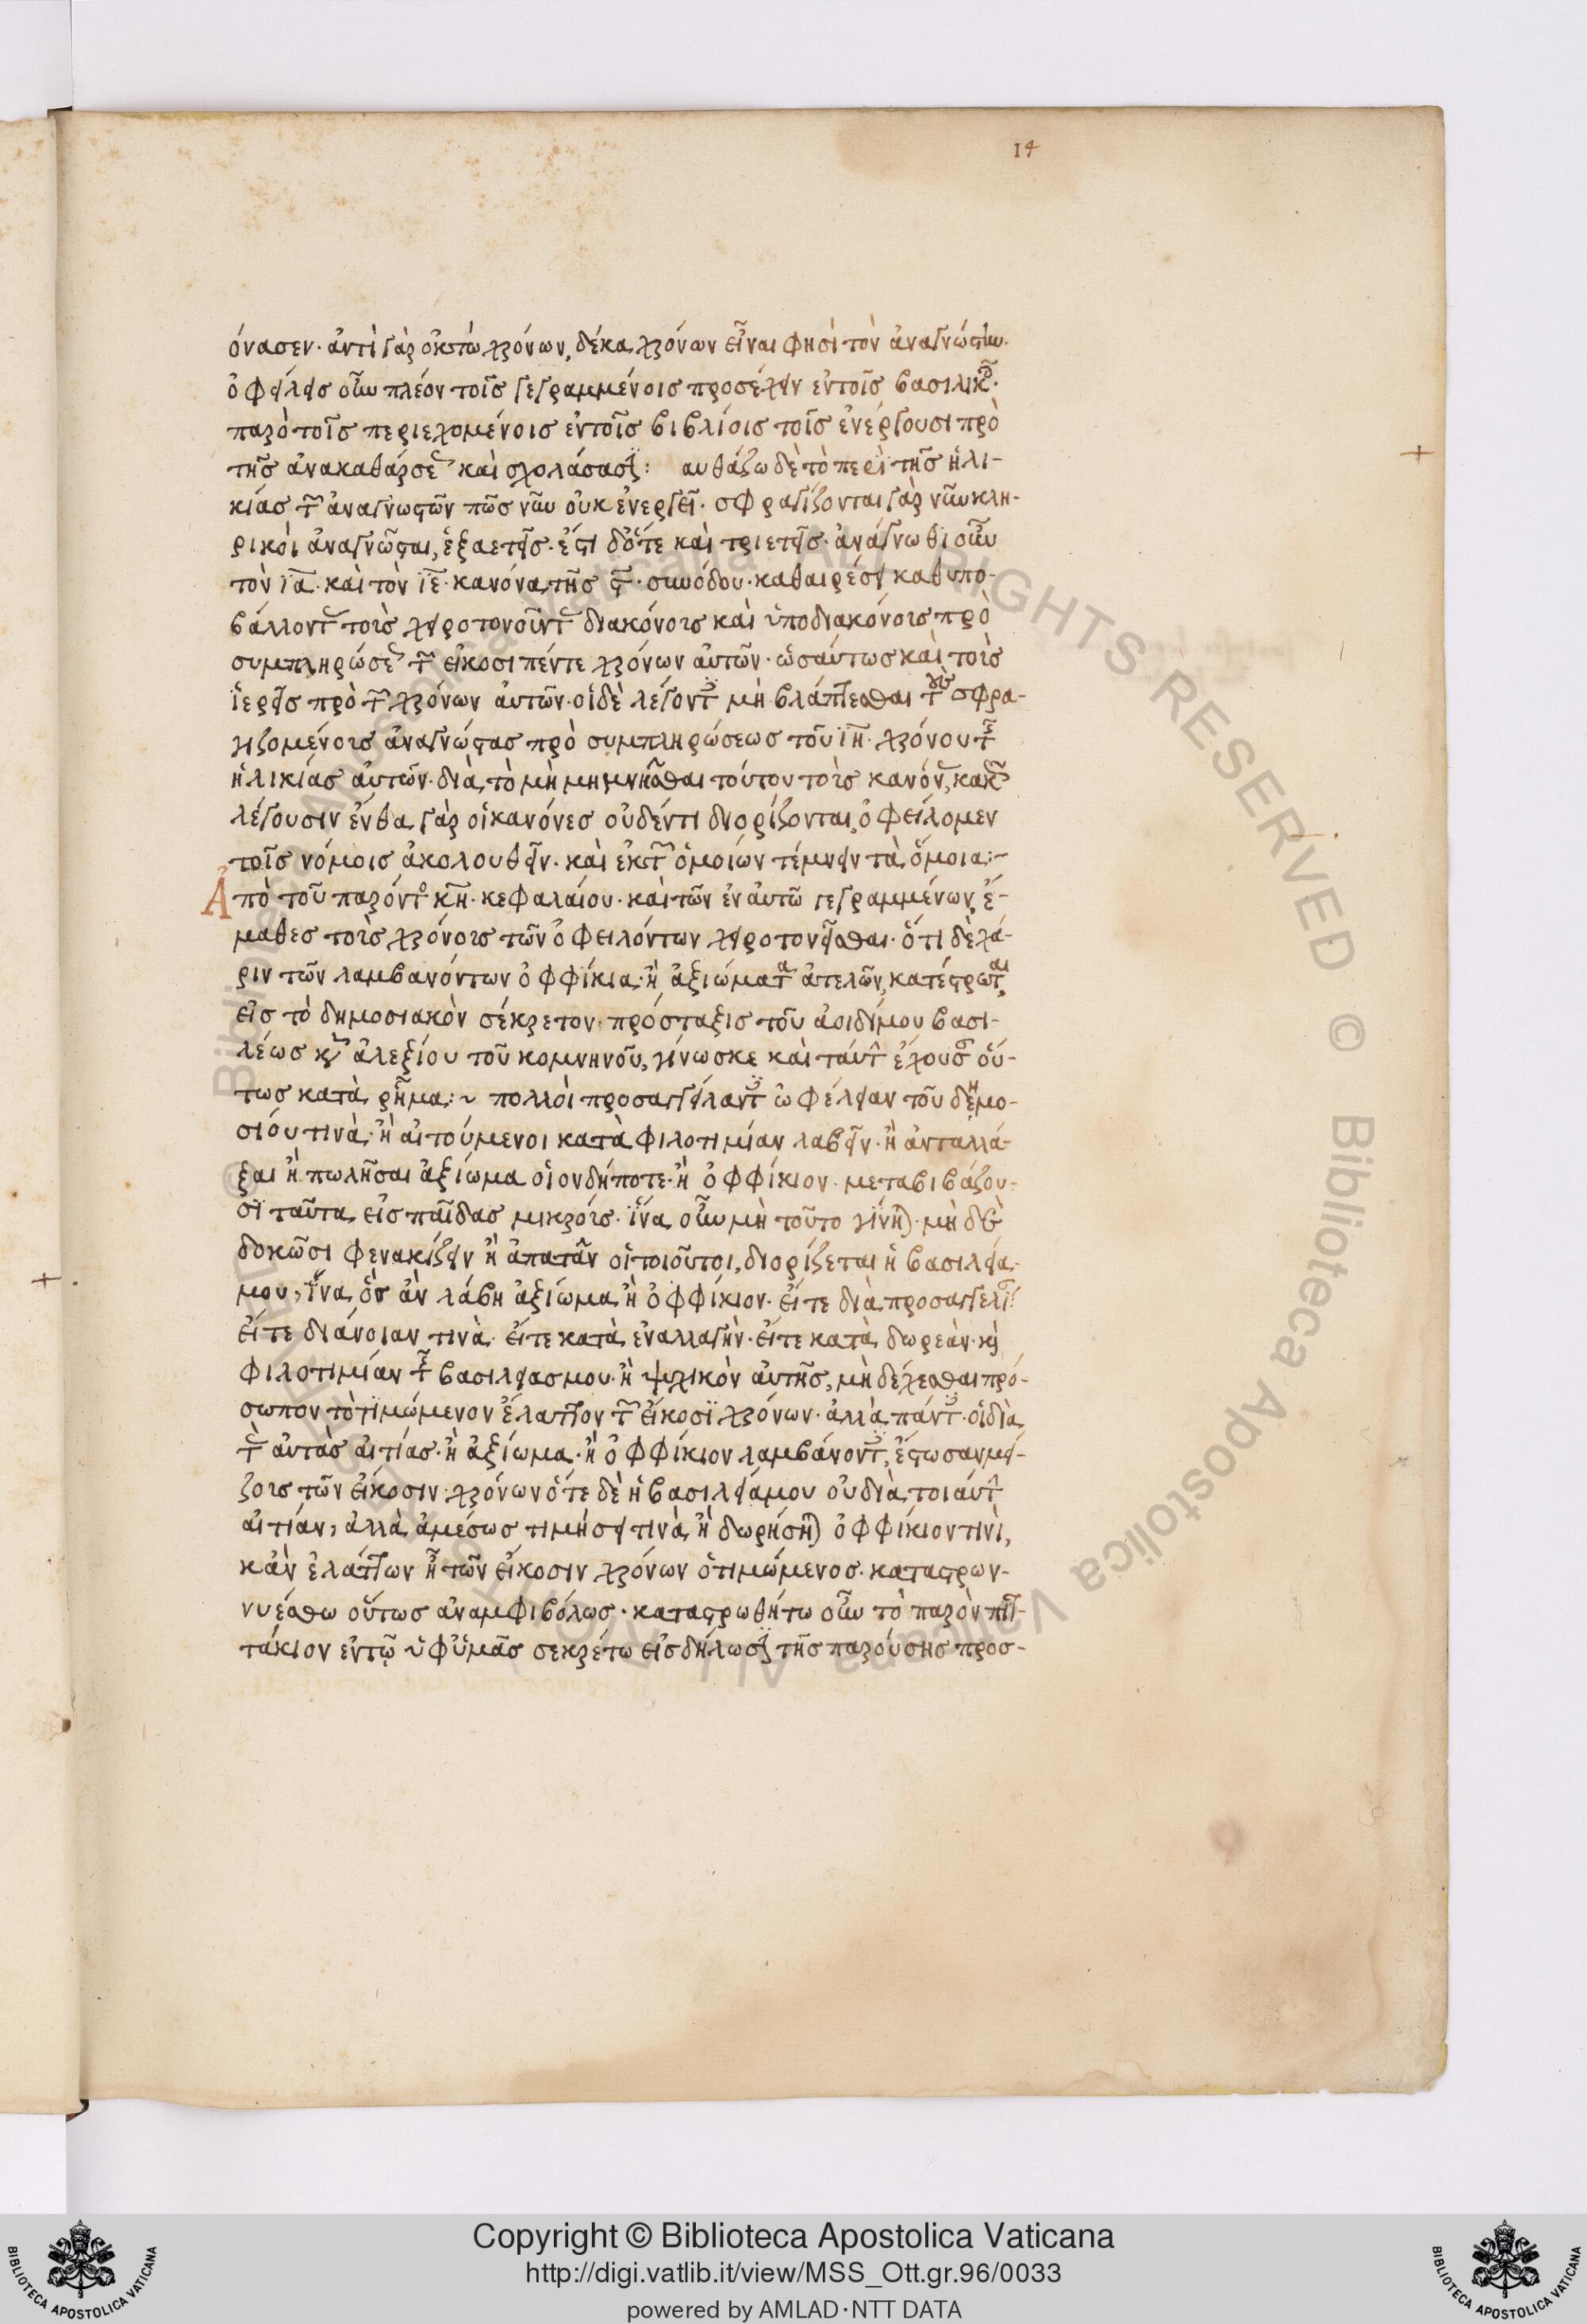 14
όνασεν· ἀντὶ γὰρ ὀκτὼ χρόνων, δέκα χρόνων εἶναι φησὶ τὸν ἀναγνώστην.
ὀφείλεις οὖν πλέον τοῖς γεγραμμένοις προσέχειν ἐν τοῖς βασιλικοῖς·
παρὸ τοῖς περιεχομένοις ἐν τοῖς βιβλίοις τοῖς ἐνεργοῦσι πρὸ
τῆς ἀνακαθάρσεως καὶ σχολάσασι: αυθάζω δὲ τὸ περὶ τῆς ἡλι-
κίας τῶν ἀναγνωστῶν πῶς νῦν οὐκ ἐνεργεῖ· σφραγίζονται γὰρ νῦν κλη-
ρικοὶ ἀναγνῶσται, ἑξαετεῖς· ἔστι δ' ὅτε καὶ τριετεῖς· ἀνάγνωθι οὖν
τὸν ια· καὶ τὸν ιε· κανόνα τῆς ϛ· συνόδου· καθαιρέσει καθυπο-
βάλλοντας τοὺς χειροτονοῦντας διακόνους καὶ ὑποδιακόνους πρὸ
συμπληρώσεως τῶν εἰκοσιπέντε χρόνων αὐτῶν· ὡσαύτως καὶ τοὺς
ἱερεῖς πρὸ τῶν χρόνων αὐτῶν· οἱ δὲ λέγοντες μὴ βλάπτεσθαι τοὺς σφρα-
γιζομένους ἀναγνώστας πρὸ συμπληρώσεως τοῦ ιη· χρόνου τῆς
ἡλικίας αὐτῶν· διὰ τὸ μὴ μεμνῆσθαι τούτου τοὺς κανόνας, κακῶς
λέγουσιν ἔνθα γὰρ οἱ κανόνες οὐδέν τι διορίζονται, ὀφείλομεν
τοῖς νόμοις ἀκολουθεῖν· καὶ ἐκ τῶν ὁμοίων τέμνειν τὰ ὅμοια:-
Ἀπὸ τοῦ παρόντος κη· κεφαλαίου· καὶ τῶν ἐν αὐτῶ γεγραμμένων, ἔ-
μαθες τοὺς χρόνους τῶν ὀφειλόντων χειροτονεῖσθαι· ὅτι δὲ χά-
ριν τῶν λαμβανόντων ὀφφίκια· ἢ ἀξιώματα ἀτελῶν, κατέστρωται
εἰς τὸ δημοσιακὸν σέκρετον πρόσταξις τοῦ ἀοιδίμου βασι-
λέως κυροῦ ἀλεξίου τοῦ κομνηνοῦ, γίνωσκε καὶ ταύτην ἔχουσαν οὕ-
τως κατὰ ῥῆμα:~ πολλοὶ προσαγγείλαντες ὠφέλειαν τοῦ δημο-
σίου τινὰ· ἢ αἰτούμενοι κατὰ φιλοτιμίαν λαβεῖν· ἢ ἀνταλλά-
ξαι ἢ πωλῆσαι ἀξίωμα οἱονδήποτε· ἢ ὀφφίκιον· μεταβιβάζου-
σι ταῦτα εἰς παῖδας μικρούς· ἵνα οὖν μὴ τοῦτο γίνηται· μὴ δὲ
δοκῶσι φενακίζειν ἢ ἀπατᾶν οἱ τοιοῦτοι, διορίζεται ἡ βασιλεία
μου, ἵνα ὃς ἂν λάβη ἀξίωμα ἢ ὀφφίκιον· εἴτε διὰ προσαγγελίας
εἴτε διάνοιαν τινὰ· εἴτε κατὰ ἐναλλαγὴν· εἴτε κατὰ δωρεὰν· καὶ
φιλοτιμίαν τῆς βασιλείας μου· ἢ ψυχικὸν αὐτῆς, μὴ δέχεσθαι πρό-
σωπον τὸ τιμώμενον ἔλαττον τῶν εἴκοσι χρόνων· ἀλλὰ πάντες· οἱ διὰ
τὰς αὐτὰς αἰτίας· ἢ ἀξίωμα· ἢ ὀφφίκιον λαμβάνοντες, ἔστωσαν μεί-
ζους τῶν εἴκοσιν χρόνων ὅτε δὲ ἡ βασιλεία μου οὐ διὰ τοιαύτην
αἰτίαν, ἀλλὰ ἀμέσως τιμήσει τινὰ ἢ δωρήσηται ὀφφίκιον τινὶ,
κἂν ἐλάττων ἦ τῶν εἴκοσιν χρόνων ὁ τιμώμενος· καταστρων-
νυέσθω οὕτως ἀναμφιβόλως· καταστρωθήτω οὖν τὸ παρὸν πιτ-
τάκιον ἐν τῷ ὑφ' ὑμᾶς σεκρέτω εἰς δήλωσιν τῆς παρούσης προσ-
Copyright © Biblioteca Apostolica Vaticana
http://digi.vatlib.it/view/MSS_Ott.gr.96/0033
powered by AMLAD·NTT DATA
BIBLIOTECA APOSTOLICA VATICANA
BIBLIOTECA APOSTOLICA VATICANA